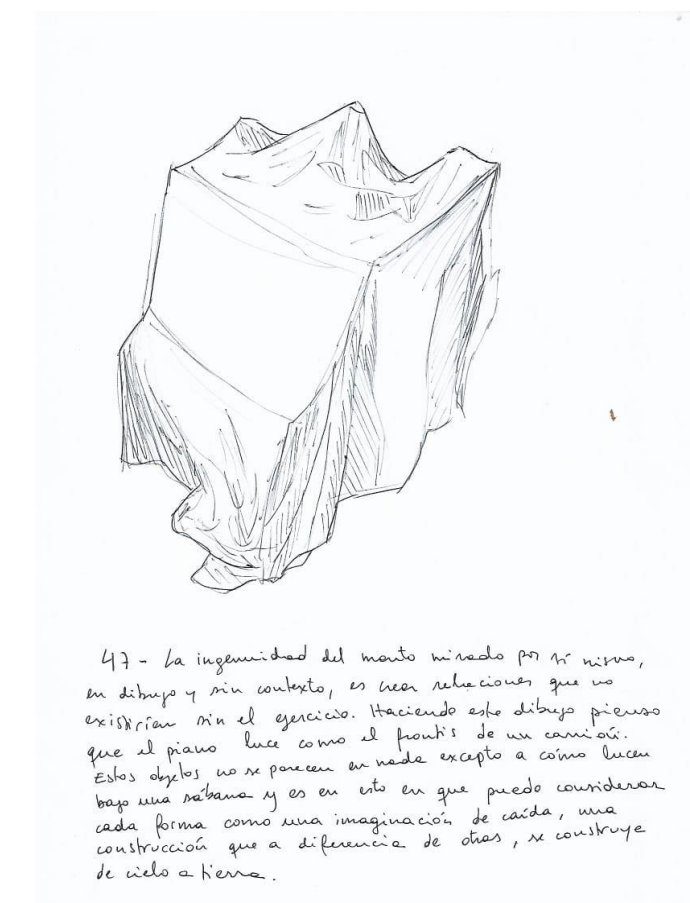 47 - La ingenuidad del manto mirado por sí mismo,
en dibujo y sin contexto, es crear relaciones que no
existirían sin el ejercicio. Haciendo este dibujo pienso
que el piano luce como el frontis de un camión.
Estos objetos no se parecen en nada excepto a cómo lucen
bajo una sábana y es en esto en que puedo considerar
cada forma como una imaginación de caída, una
construcción que a diferencia de otras, se construye
de cielo a tierra.